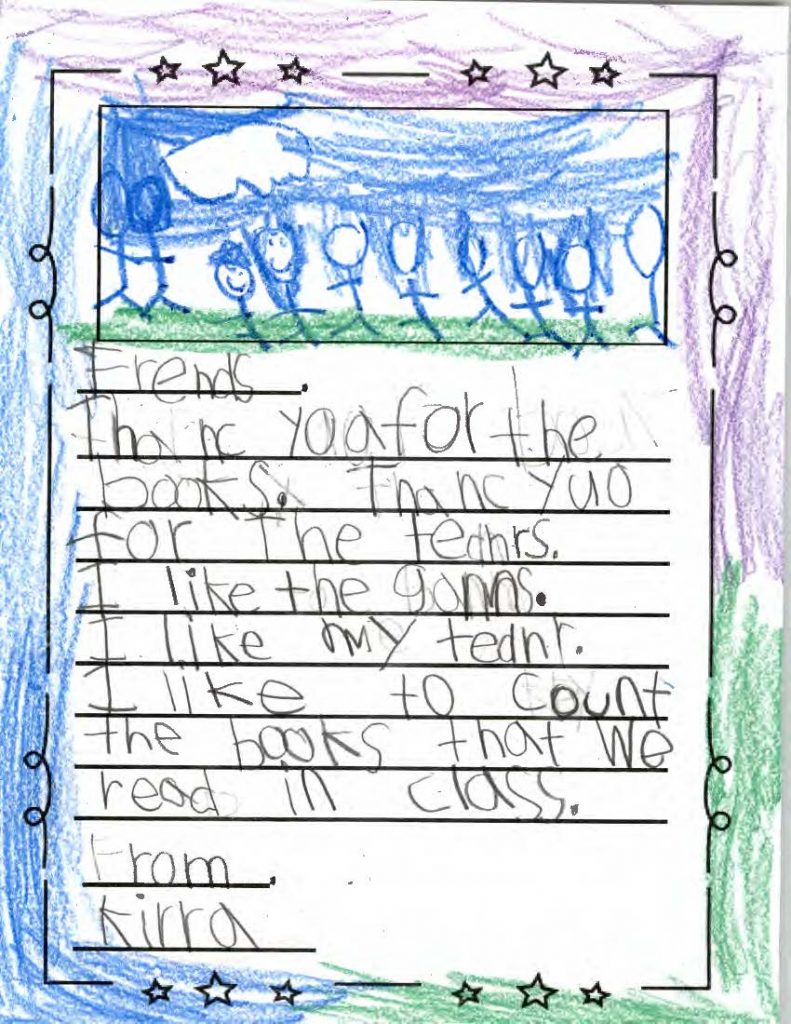 Frends.
Thanc yoa for the
books. Thanc yuo
for the teahrs.
I like the gonns.
I like my teahr.
I like to count
the books that We
read in class.
From.
Kirra